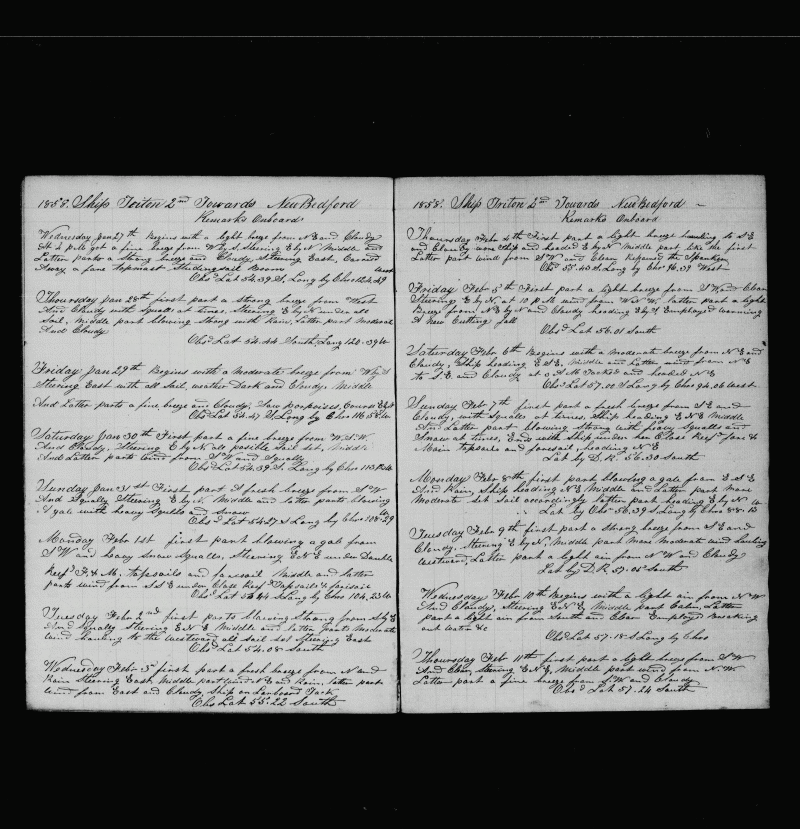 1858. Ship Triton 2nd Towards New Bedford
Remarks Onboard
Wednesday Jan 27th Begins with a light breeze from N E and Cloudy
At 2 P.M. got a fine breeze from W by S, Steering E by N Middle and
Latter parts a Strong breeze and Cloudy, Steering East, Carried
Away a fore topmast Studdingsail Boom
Obsd Lat 54.39 S, Long by Chro 124.49 West
Thoursday Jan 28th first part a strong breeze from West
And Cloudy with squalls at times, Steering E by N under all
Sail, Middle part blowing strong with Rain, Latter part Moderate
And Cloudy
Obsd Lat 54.44 South, Long 120.39 W
Friday Jan 29th Begins with a Moderate breeze from W by S
Steering East with all Sail, weather Dark and Cloudy, Middle
And Latter parts a fine breeze and Cloudy, Saw porpoises, Course East
Obs Lat 54.47 S, Long by Chro 116.58 W
Saturday Jan 30th First part a fine breeze from W.S.W.
And Cloudy, Steering E by N, all possible Sail Set, Middle
And Latter parts wind from S W and Squally
Obsd Lat 54.39 S, Long by Chro 113 W
Sunday Jan 31st First part A fresh breeze from S W
And Squally Steering E by N. Middle and latter parts blowing
A gale with heavy Squalls and Snow
Obsd Lat 54.27 S Long by Chro 108.29 W
Monday Feb 1st first part blowing a gale from
S W and heavy Snow Squalls, Steering E N E under Double
Reefd F. & M. topsails and foresail Middle and latter
parts wind from S S E under Close Reefd Topsails & foresail
Obsd Lat 54 S Long by Chro 104.23 W
Tuesday Feb 2nd first parts blowing Strong from S by E
And Squally Steering E N E Middle and latter parts Moderate
wind hauling to the westward all sail set Steering East
Obsd Lat 54.08 South
Wednesday Feb 3 first part a fresh breeze from N and
Rain Steering East, Middle part wind N E and Rain, latter part
wind from East and Cloudy, Ship on Larboard Tack
Obs Lat 55.22 South
1858. Ship Triton 2d Towards New Bedford
Remarks Onboard
Thoursday Feb 4th First part a light breeze hauling to S E
and Cloudy wore Ship and headed E by N Middle part like the first
Latter part wind from S W and Clear Repaired the Spanker
Obsd 55.40 S Long by Chro 96.39 West
Friday Feb 5th First part a light breeze from S W and Clear
Steering E by N, at 10 P M wind from W.N.W. latter part a light
Breeze from N E by N and Cloudy heading E by S Employed worming
A New Cutting fall
Obsd Lat 56.01 South
Saturday Feb 6th Begins with a Moderate breeze from N E and
Cloudy, Ship heading E S E, Middle and Latter wind from N E
to S E and Cloudy at 9 A M Tacked and headed N E
Obsd Lat 57.00 S Long by Chro 94.06 West
Sunday Feb 7th first part a fresh breeze from S E and
Cloudy, with Squalls at times, Ship heading E N E Middle
And Latter part blowing strong with heavy Squalls and
Snow at times, Ends with ship under her Close Reefd fore &
Main topsails and foresail, heading N E
Lat by D.R. 56.30 South
Monday Feb 8th first part, blowing a gale from E S E
And Rain, Ship heading N E Middle and Latter part more
Moderate Set Sail accordingly latter part heading E by N
Lat by Obs 56.39 S Long by Chro 88.15 W
Tuesday Feb 9th first part a strong breeze from S E and
Cloudy, Steering E by N, Middle part More Moderate wind hauling
westward, Latter part a light air from N W and Cloudy
Lat by D.R. 57.05 South
Wednesday Feb 10th Begins with a light air from N W
And Cloudy, Steering E N E Middle part Calm, Latter
part a light air from South and Clear Employd Breaking
out water &c
Obsd Lat 57.18 S Long by Chro
Thoursday Feb 11th first part a light breeze from S W
And Clear, Steering E N E, Middle part wind from N.W.
Latter part a fine breeze from S W and Cloudy
Obsd Lat 57.24 South